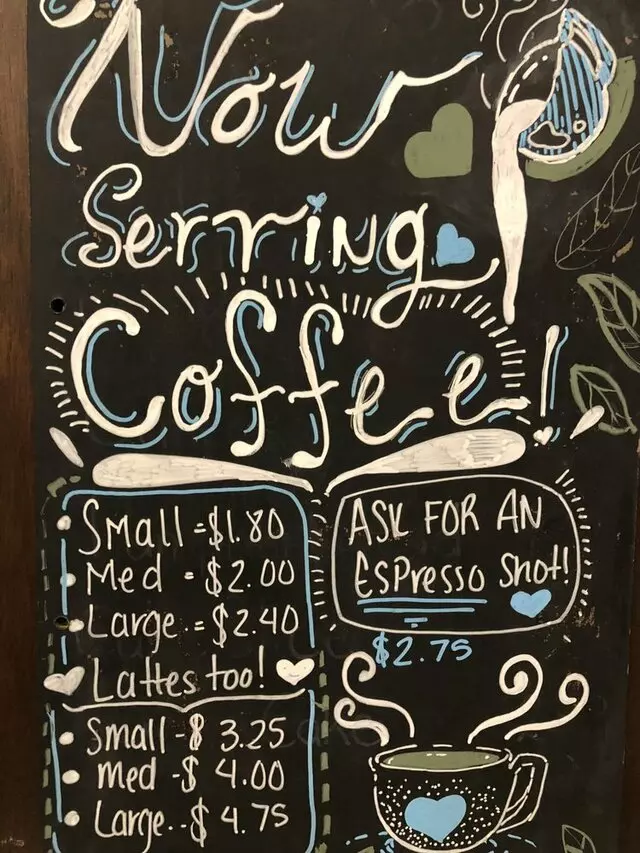 Now
Serving
Coffee!
Small = $1.80
Med = $2.00
Large = $2.40
Lattes too!
Small - $ 3.25
med - $ 4.00
Large - $ 4.75
ASK FOR AN
Espresso Shot!
$2.75